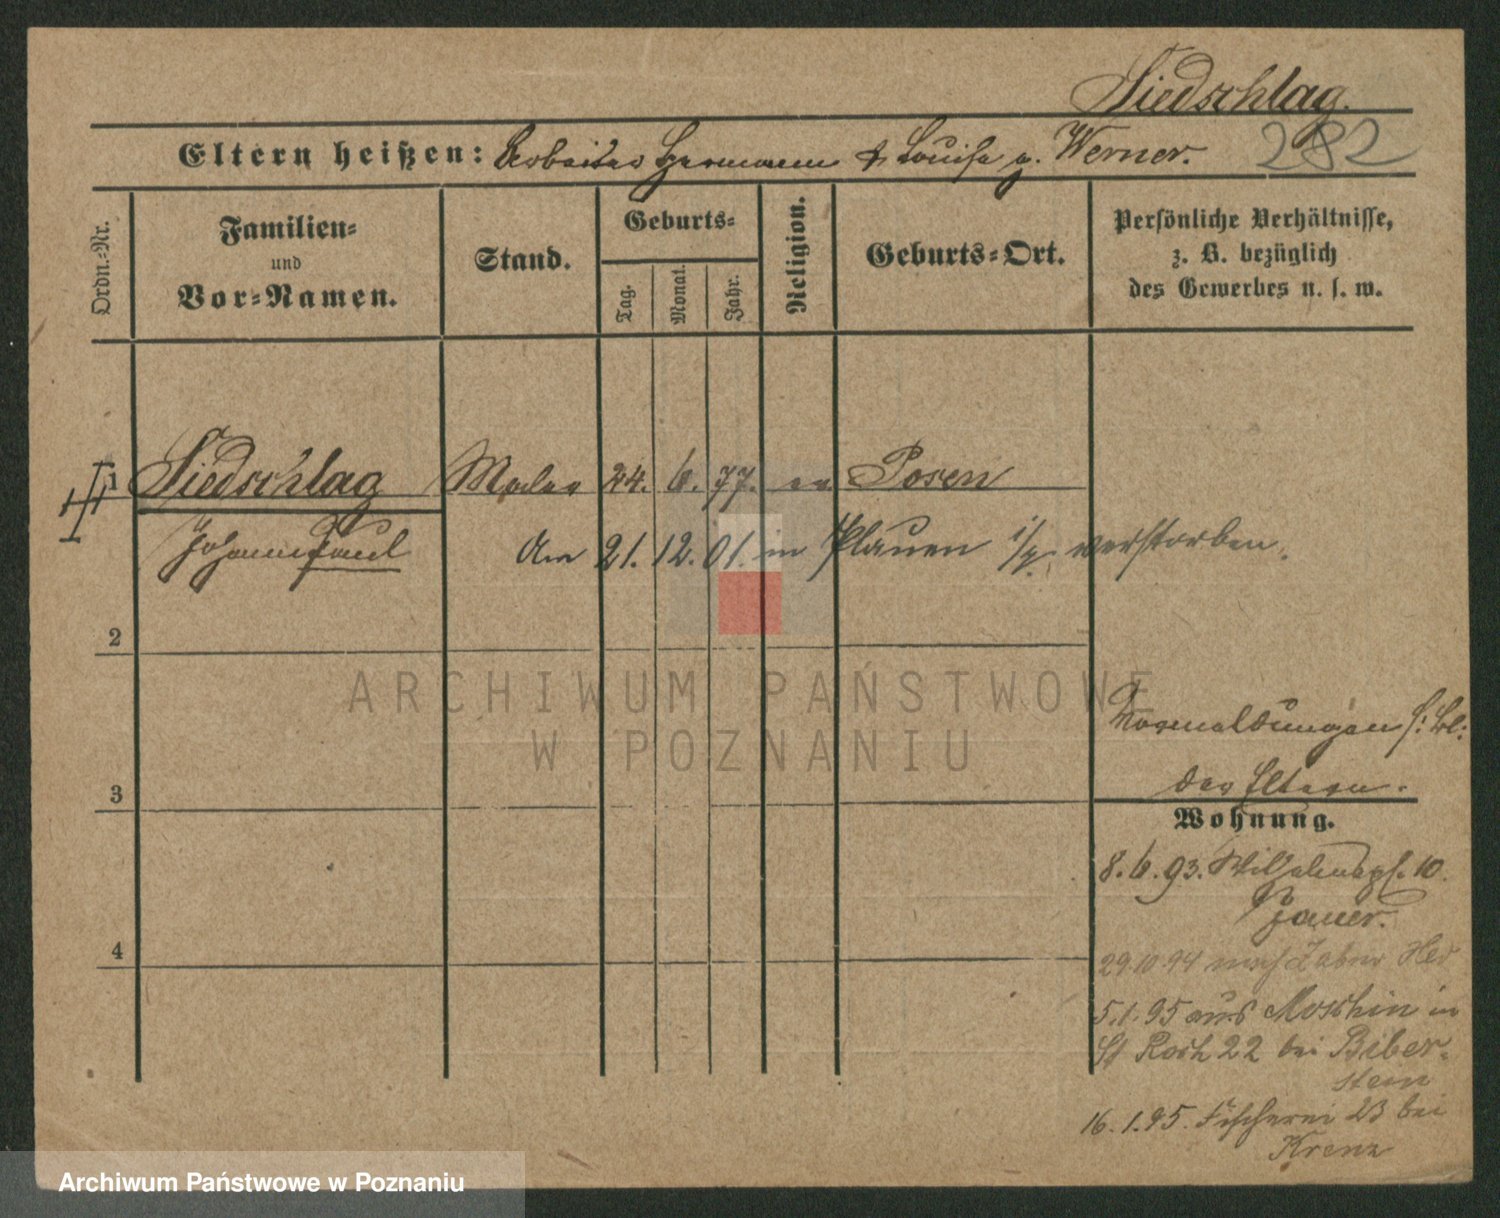 Siedschlag.
Eltern heißen: Arbeiter Hermann & Louise g. Werner. 282
Ordn.=Nr.
Familien=
und
Vor=Namen.
Stand.
Geburts=
Tag.
Monat.
Jahr.
Religion.
Geburts=Ort.
Persönliche Verhältnisse,
z. B. bezüglich
des Gewerbes u. s. w.
1 Siedschlag Maler 24. 6. 77. ev. Posen
Johann Paul am 21. 12. 01. in Plauen i/V. verstorben.
2
ARCHIWUM PAŃSTWOWE
W POZNANIU
Vormeldungen s: Bl:
der Eltern.
3
Wohnung.
8. 6. 93. Wilhelmspl. 10.
Bauer.
4
29.10.94 nach
5.1.95 aus Moschin in
St Roch 22 bei Biber-
stein
16. 1. 95. Fischerei 23 bei
Krenz
Archiwum Państwowe w Poznaniu